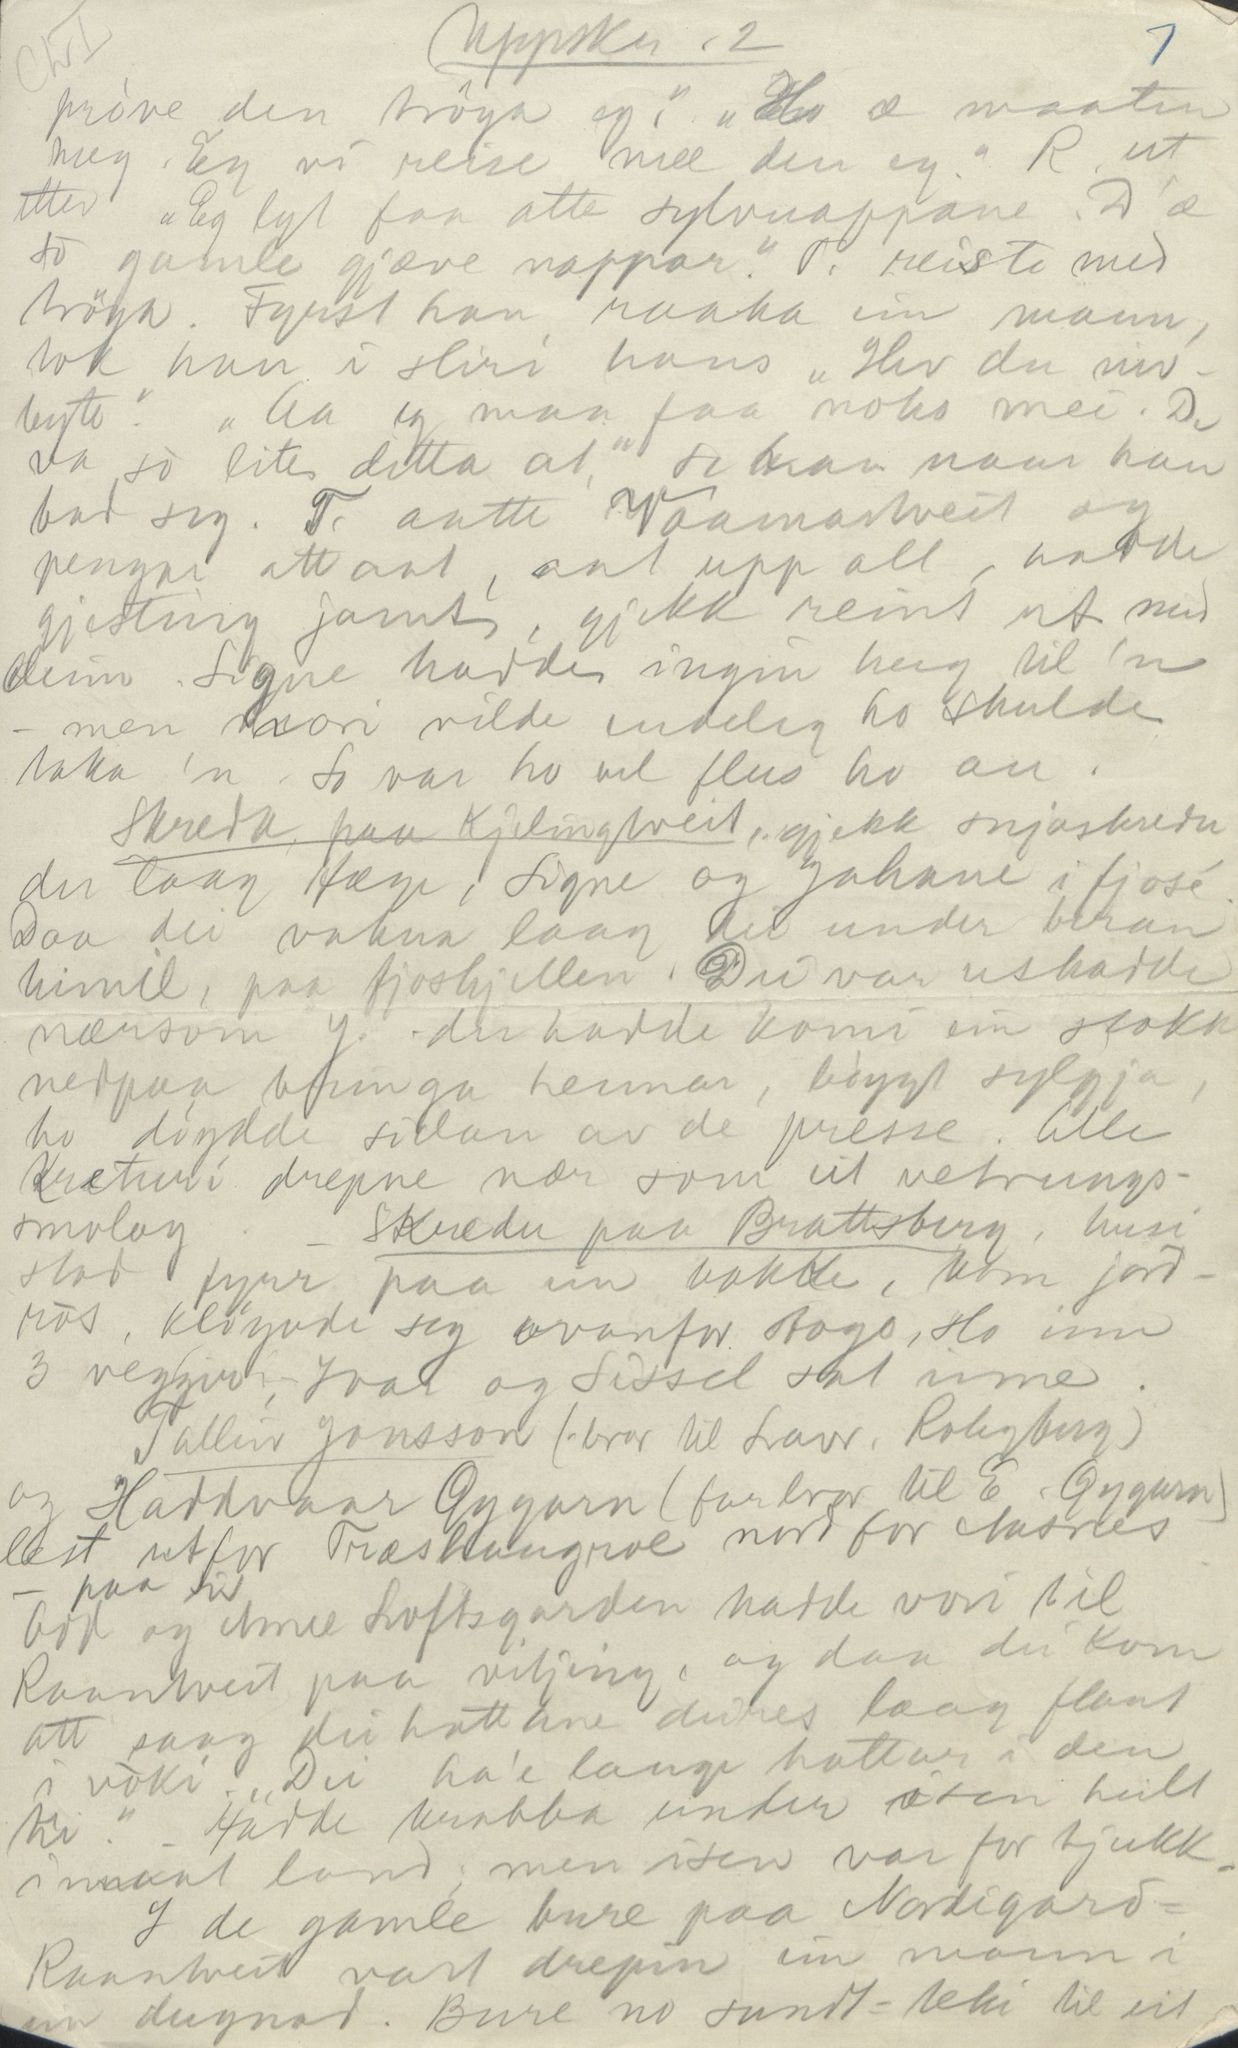 Uppskr. 2
1
pröve den tröya ej." "Ho æ maaten
meg. Eg vi reise mæ den eg." R. ut
etter "Eg lyt faa atte sylvnappane. D'æ
so gamle gjæve nappar." T. reiste med
tröya. Fyrst han raaka ein mann,
tok han i sliri hans "Hev du niv-
byte." "Aa eg maa faa noko mei. D.
va so lite ditta at," sa han naar han
bad seg. T. aatte Vaamartveit og
pengar attaat, aat upp alt, hadde
gjesting jamt, gjekk reint ut med
deim. Signe hadde ingin hug til 'n
- men mori vilde endeleg ho skulde
taka 'n. So var ho vel flus ho au.
Skreda paa Kjelingtveit, gjekk snjoskreda
der laag Hæge, Signe og Johane i fjosé.
Daa dei vakna laag dei under beran
himil, paa fjoshjellen. Dei var uskadde
nærsom J. der hadde komi ein stokk
nedpaa bringa hennar, bögt sylgja,
ho döydde sidan av de presse. Alle
kreturi drepne nær som eit vetrungs-
smolag. - Skreda paa Brattsberg, husi
stod fyrr paa ein bakke, kom jord-
ras, klöyvde seg ovanfor stogo, Ho inn
3 veggir, Ivar og Sissel sat inne.
Talleiv Jonsson (bror til Lavr. Roligberg)
og Haddvaar Gygarn (farbror til E. Gygarn)
lest utfor Træshaugroe nord for Aasnes
- paa is
Odd og Anne Loftsgarden hadde vori til
Raantveit paa vitjing, og daa dei kom
att saag dei hattane deires laag flaut
i vöki. "Dei ha'e lange hattar i den
ti." - Hadde krabba under isen heilt
innaat land, men isen var for tjukk.
I de gamle bure paa Nordigard-
Raantveit vart drepin ein mann i
ein dugnad. Bure no sundt-teki til eit